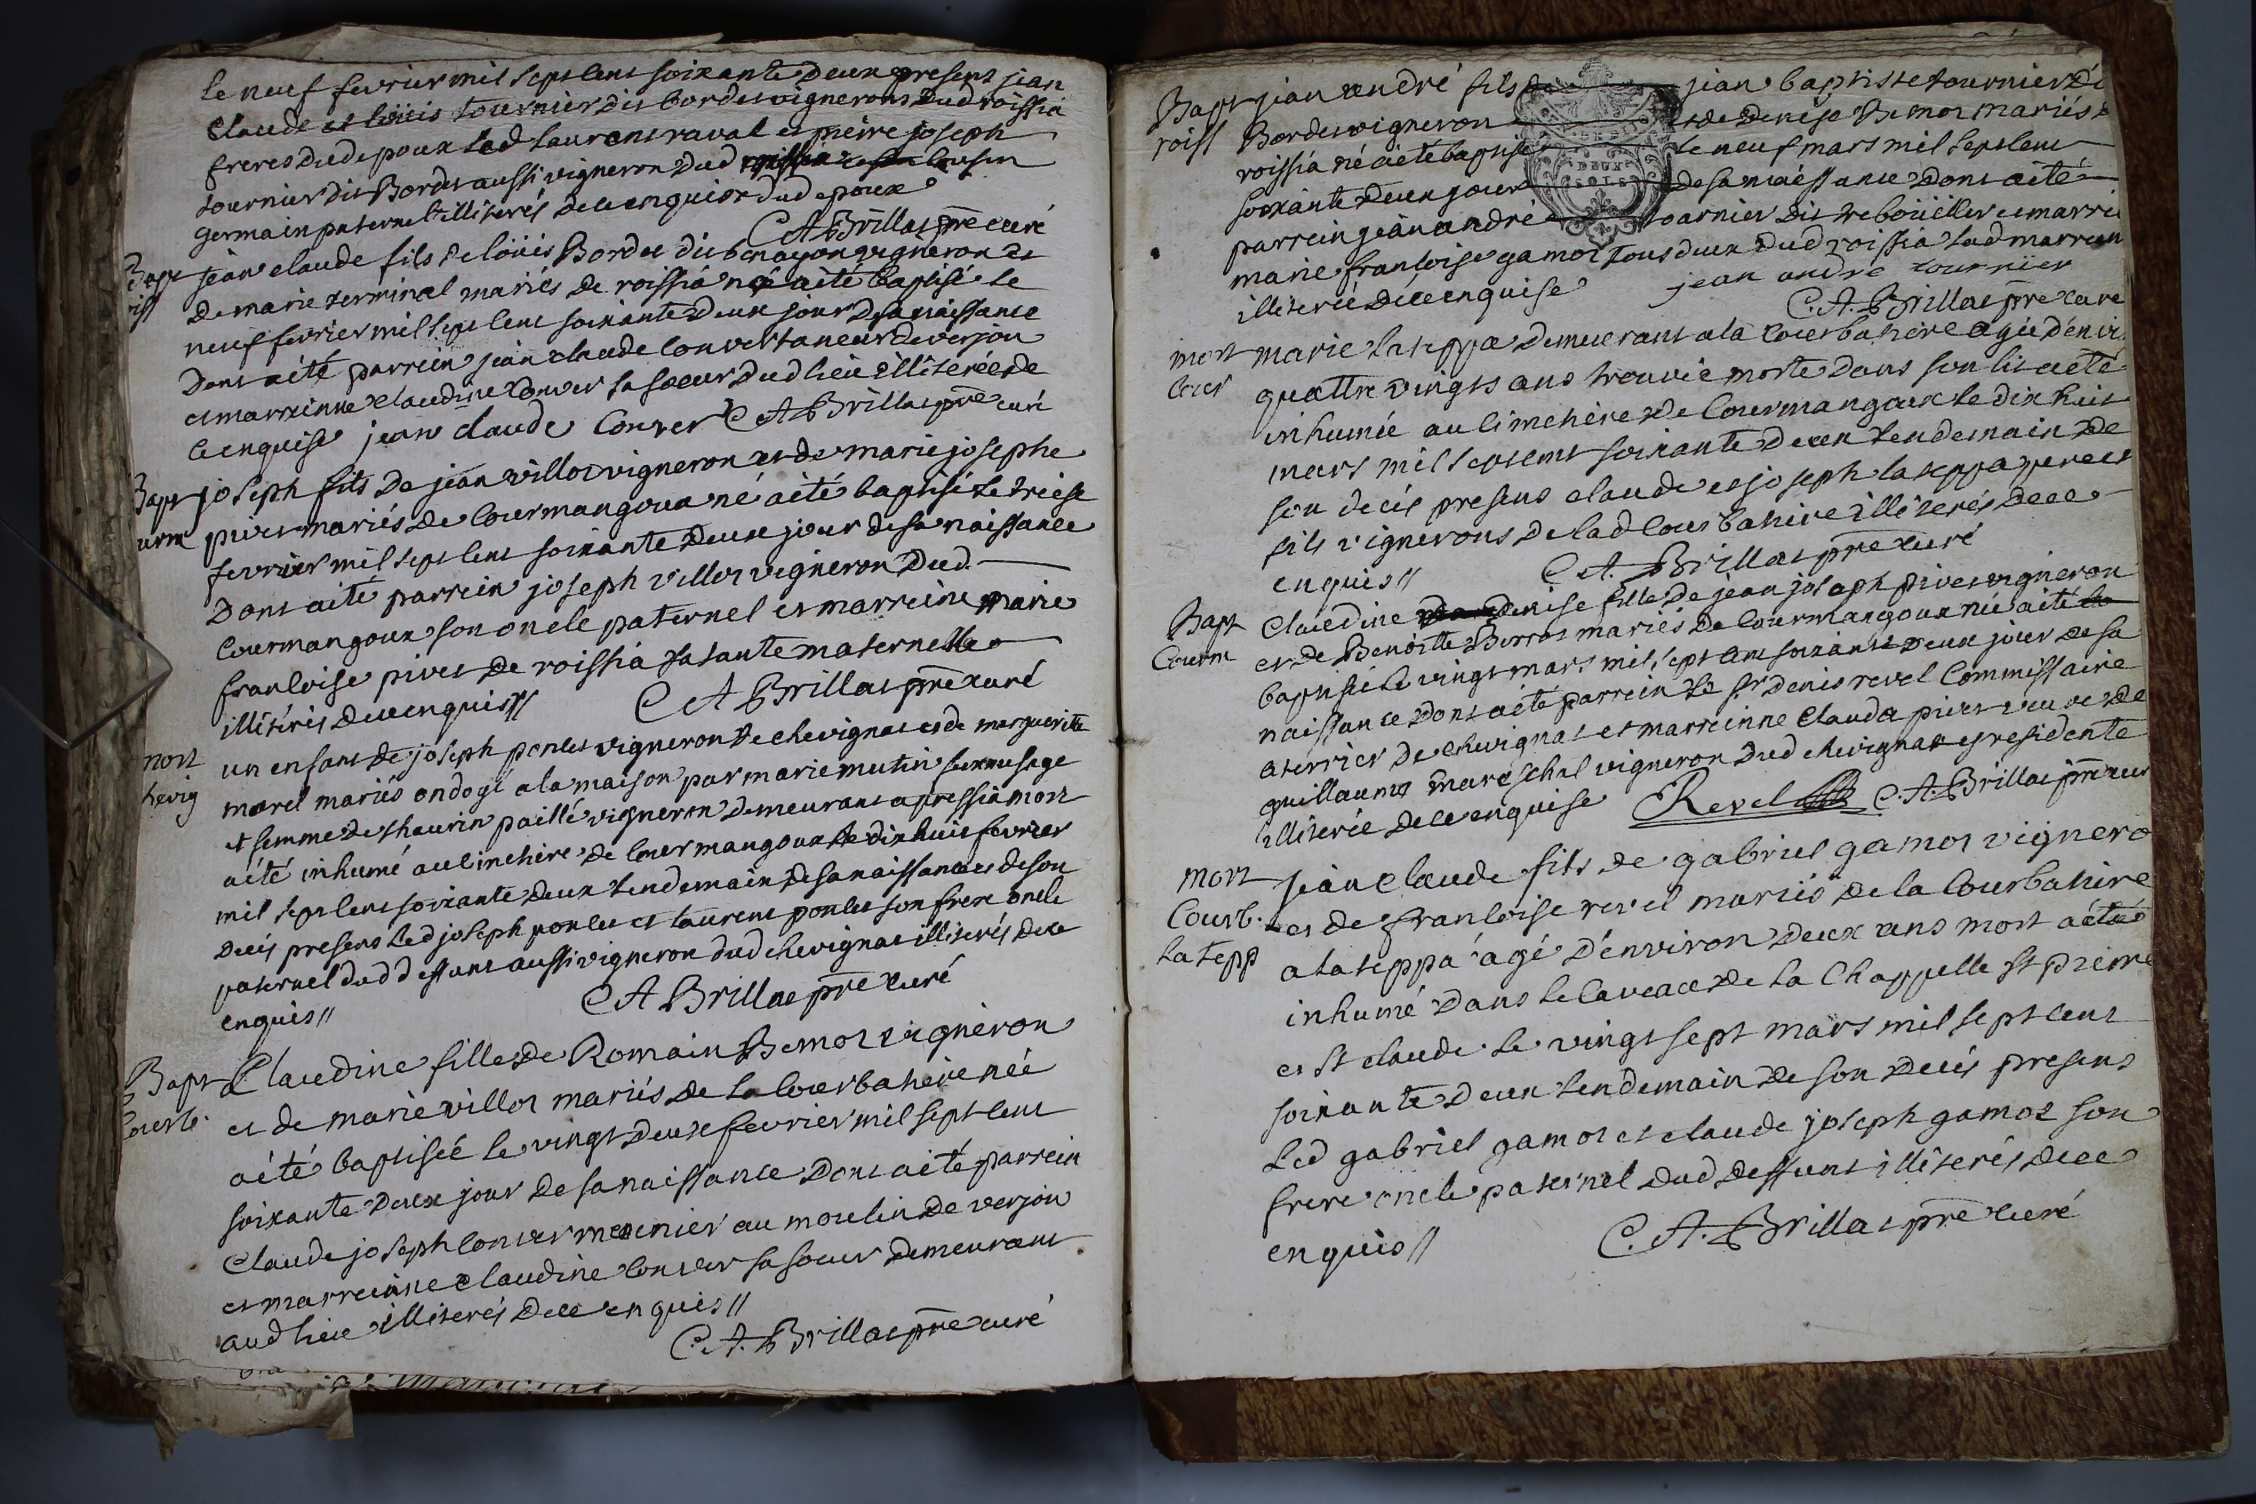 le neuf fevrier mil sept cent soixante deux present jean
Claude et loüis tournier dit bordes vignerons dud roissia
freres dud epoux led laurent raval et pierre joseph
tournier dit Bordes aussi vigneron dud roissia cousin
germain paternel illiterés de ce enquis dud epoux
C A Brillat pre curé
Bapt
roiss
jean claude fils de loüis Bordes dit vigneron et
de marie terminal mariés de roissia né aété baptisé le
neuf fevrier mil sept cent soixante deux jour de sa naissance
dont aété parrein jean claude Convert de verjon
et marreinne claudine Conver sa soeur dud lieu illiterée de
ce enquise jean claude Conver C A Brillat pre curé
Bapt
urm
joseph fils de jean villot vigneron et de marie josephe
pivet mariés de Courmangoux né aété baptisé le treise
fevrier mil sept cent soixante deux jour de sa naissance
dont aété parrein joseph villot vigneron dud
Courmangoux son oncle paternel et marreine marie
francoise pivet de roissia sa tante maternelle
illiterés de ce enquis//
C A Brillat pre curé
mort
hevig
un enfant de joseph ponlet vigneron de chevignat et de marguerite
morel mariés ondoyé a la maison par marie mutin
et femme de thaurin paillé vigneron demeurant a pressiâ mort
aété inhumé au cimetière de Courmangoux le dix huit fevrier
mil sept cent soixante deux lendemain de sa naissance et de son
decés presens led joseph ponlet et laurent ponlet son frere oncle
paternel dud deffunt aussi vigneron dud chevignat illiterés de ce
enquis//
C A Brillat pre curé
Bapt
Courb.
Claudine fille de Romain Bemot vigneron
et de marie villot mariés de la Courbatiere née
aété baptisée le vingt deux fevrier mil sept cent
soixante deux jour de sa naissance dont aété parrein
Claude joseph Conver meunier au moulin de verjon
et marreinne claudine Conver sa soeur demeurant
aud lieu illiterés de ce enquis//
C. A. Brillat pre curé
Bapt
roiss
jean andré fils de jean baptiste tournier di
Bordes vigneron et de Denise Bemot mariés
roissia né aété baptisé le neuf mars mil sept cent
DEUX
SOLS
soixante deux jour de sa naissance dont aété
parrein jean andré tournier dit reboüiller et marrei
marie francoise gamot tous deux dud roissia lad marrein
illiterée de ce enquise jean andre tournier
C. A. Brillat pre cure
mort
Cour
marie lateppa demeurant a la Courbatiere agée d'envi
quattre vingts ans trouvée morte dans son lit aété
inhumée au cimetiére de Courmangoux le dix huit
mars mil sept cent soixante deux lendemain de
son decés presens claude et joseph lateppa pere et
fils vignerons de lad Courbatiere illiterés de ce
enquis//
C. A. Brillat pre curé
Bapt
Courm
Claudine denise fille de jean joseph pivet vigneron
et de Benoitte Borrot mariés de Courmangoux née aété
baptisée le vingt mars mil sept cent soixante deux jour de sa
naissance dont aété parrein le sr denis revel Commissaire
a terrier de chevignat et marreinne Clauda pivet veuve de
guillaume mareschal vigneron dud chevignat y residente
illiterée de ce enquise Revel C. A. Brillat pre cur
mort
Courb.
lateppa
jean claude fils de gabriel gamot vignero
et de francoise revel mariés de la Courbatiere
a lateppa agé d'environ deux ans mort aété
inhumé dans le caveau de la Chappelle st pierre
et st claude le vingt sept mars mil sept cent
soixante deux lendemain de son decés presens
led gabriel gamot et claude joseph gamot son
frere oncle paternel dud deffunt illiterés de ce
enquis//
C. A. Brillat pre curé